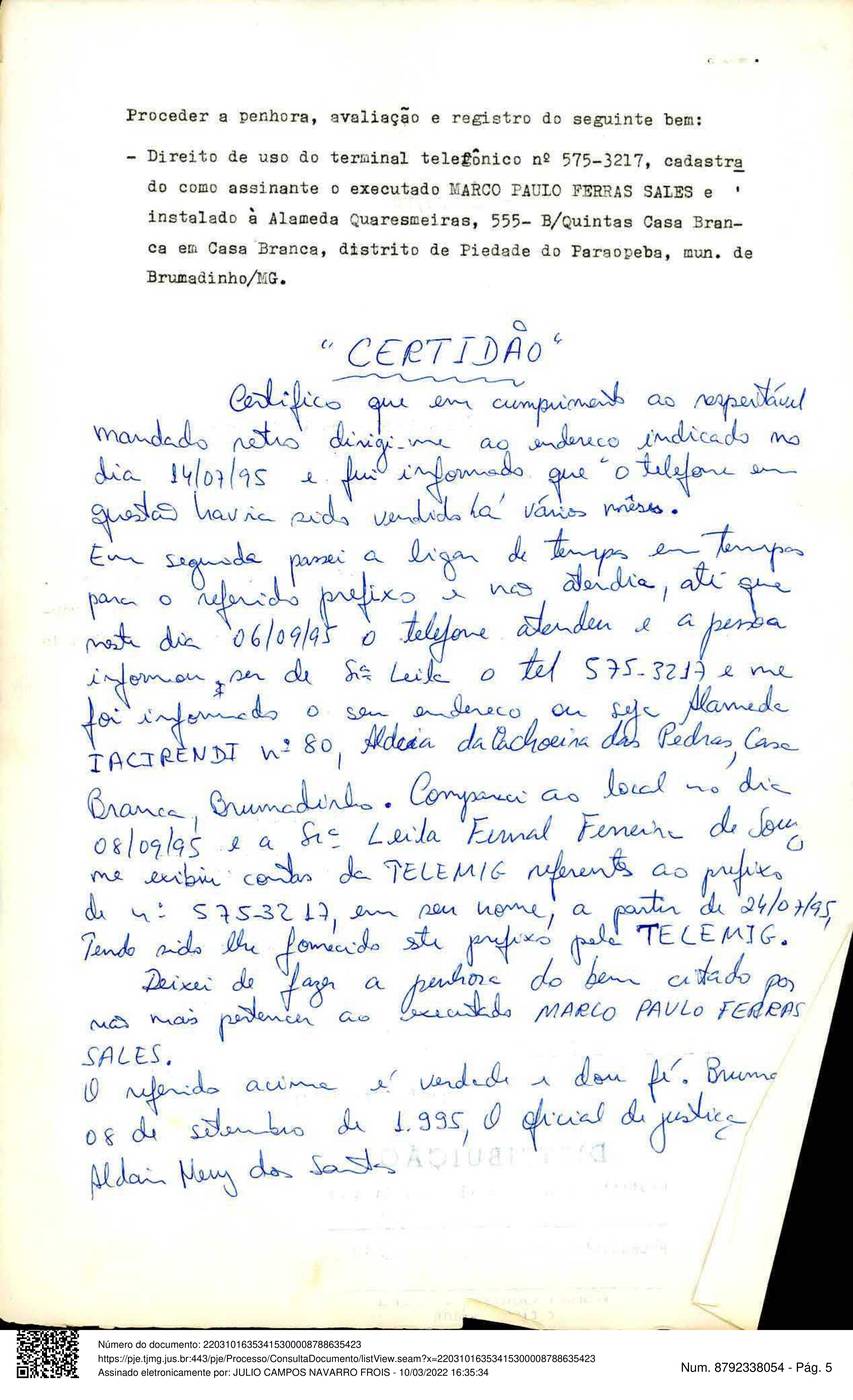 Proceder a penhora, avaliação e registro do seguinte bem:
- Direito de uso do terminal telefônico nº 575-3217, cadastra
do como assinante o executado MARCO PAULO FERRAS SALES e '
instalado à Alameda Quaresmeiras, 555- B/Quintas Casa Bran-
ca em Casa Branca, distrito de Piedade do Paraopeba, mun. de
Brumadinho/MG.
"CERTIDÃO"
Certifico que em cumprimento ao respeitável
mandado retro dirigi-me ao endereco indicado no
dia 14/07/95 e fui informado que "o telefone em
questão havia sido vendido há vários mêses.
Em seguida passei a ligar de tempos em tempos
para o referido prefixo e não atendia, até que
neste dia 06/09/95 o telefone atendeu e a pessoa
informou ser de Srª Leila o tel 575-3217 e me
foi informado o seu endereco ou seja Alameda
IACIRENDI nº 80, Aldeia da Cachoeira das Pedras, Casa
Branca, Brumadinho. Compareci ao local no dia
08/09/95 e a Srª Leila Ferreira de Souza
me exibiu contas da TELEMIG referentes ao prefixo
de nº 575-3217, em seu nome, a partir de 24/07/95,
Tendo sido lhe fornecido este prefixo pela TELEMIG.
Deixei de fazer a penhora do bem citado por
não mais pertencer ao executado MARCO PAULO FERRAS
SALES.
O referido acima é verdade e dou fé. Bruma
08 de setembro de 1.995, O oficial de justiça
Aldair dos Santos
DISTRIBUIÇÃO
Número do documento: 22031016353415300008788635423
https://pje.tjmg.jus.br:443/pje/Processo/ConsultaDocumento/listView.seam?x=22031016353415300008788635423
Assinado eletronicamente por: JULIO CAMPOS NAVARRO FROIS - 10/03/2022 16:35:34
Num. 8792338054 - Pág. 5